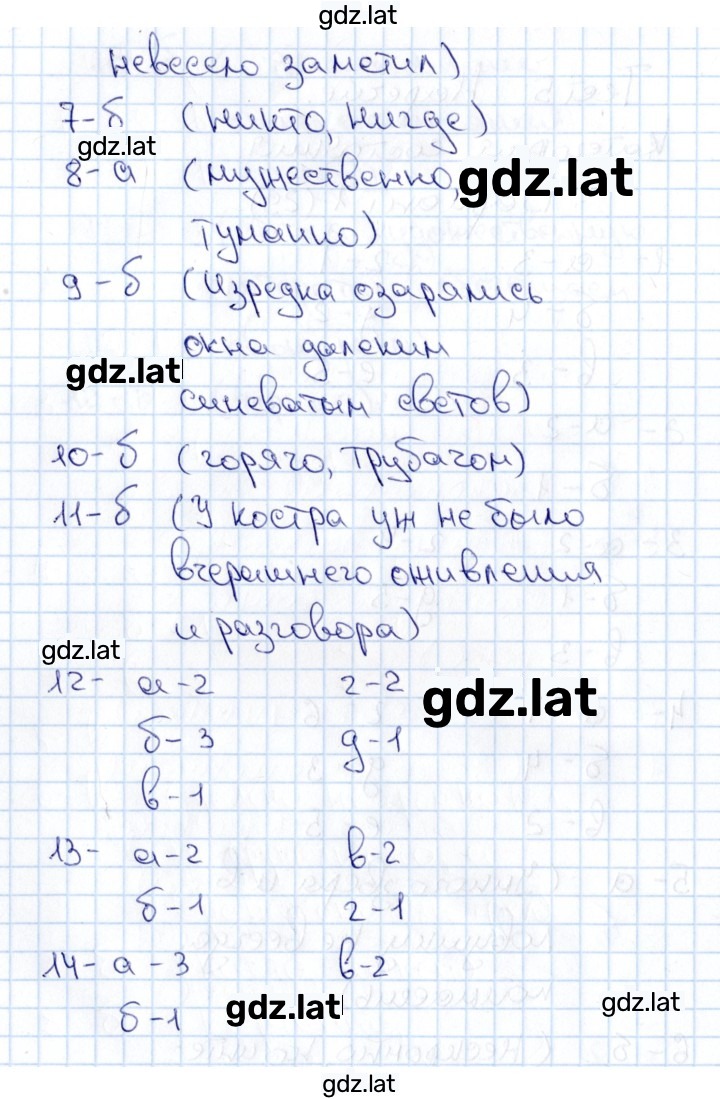 gdz.lat
невесело заметил)
7-б (никто, нигде)
gdz.lat
8-а (мужественно,
gdz.lat
туманно)
9-б (Изредка озарялись
окна далеким
gdz.lat
синеватым светов)
10-б (горячо, трубачом)
11-б (У костра уж не было
вчерашнего оживления
и разговора)
gdz.lat
12- а-2 г-2
gdz.lat
б-3 д-1
в-1
13- а-2 в-2
б-1 г-1
14- а-3 в-2
б-1
gdz.lat
gdz.lat
gdz.lat